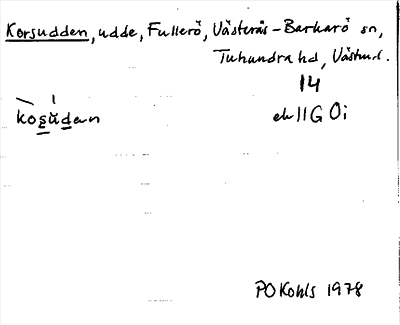 Korsudden, udde, Fullerö, Västerås-Barkarö sn,
Tuhundra hd, Västml.
14
kosudan
ek 11G 0i
PO Kohls 1978